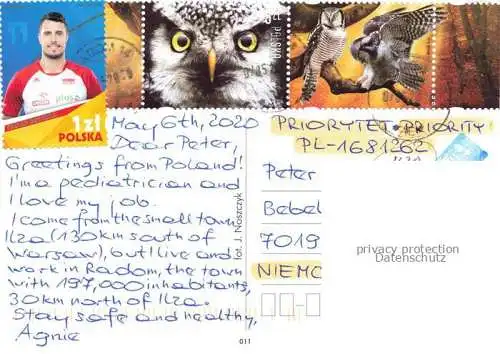 1 zł
POLSKA
May 6th, 2020
Dear Peter,
Greetings from Poland!
I'm a pediatrician and
I love my job.
I come from the small town
Ilza (130 km south of
Warsaw), but I live and
work in Radom, the town
with 197,000 inhabitants,
30 km north of Ilza.
Stay safe and healthy,
Agnie
fot. J. Noszczyk
PRIORYTET-PRIORITY!
PL-1681262
Peter
Bebel
7019
NIEMC
privacy protection
Datenschutz
011